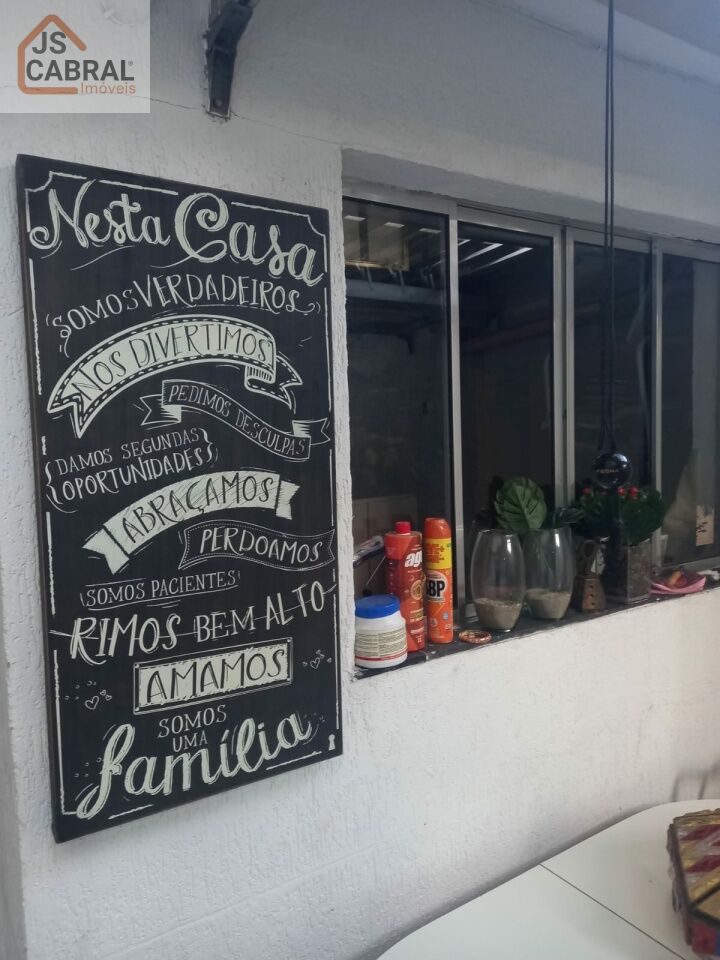 JS
CABRAL®
Imóveis
Nesta Casa
SOMOS VERDADEIROS
NOS DIVERTIMOS
PEDIMOS DESCULPAS
DAMOS SEGUNDAS
OPORTUNIDADES
ABRAÇAMOS
PERDOAMOS
SOMOS PACIENTES
RIMOS BEM ALTO
AMAMOS
SOMOS
UMA
família
BP